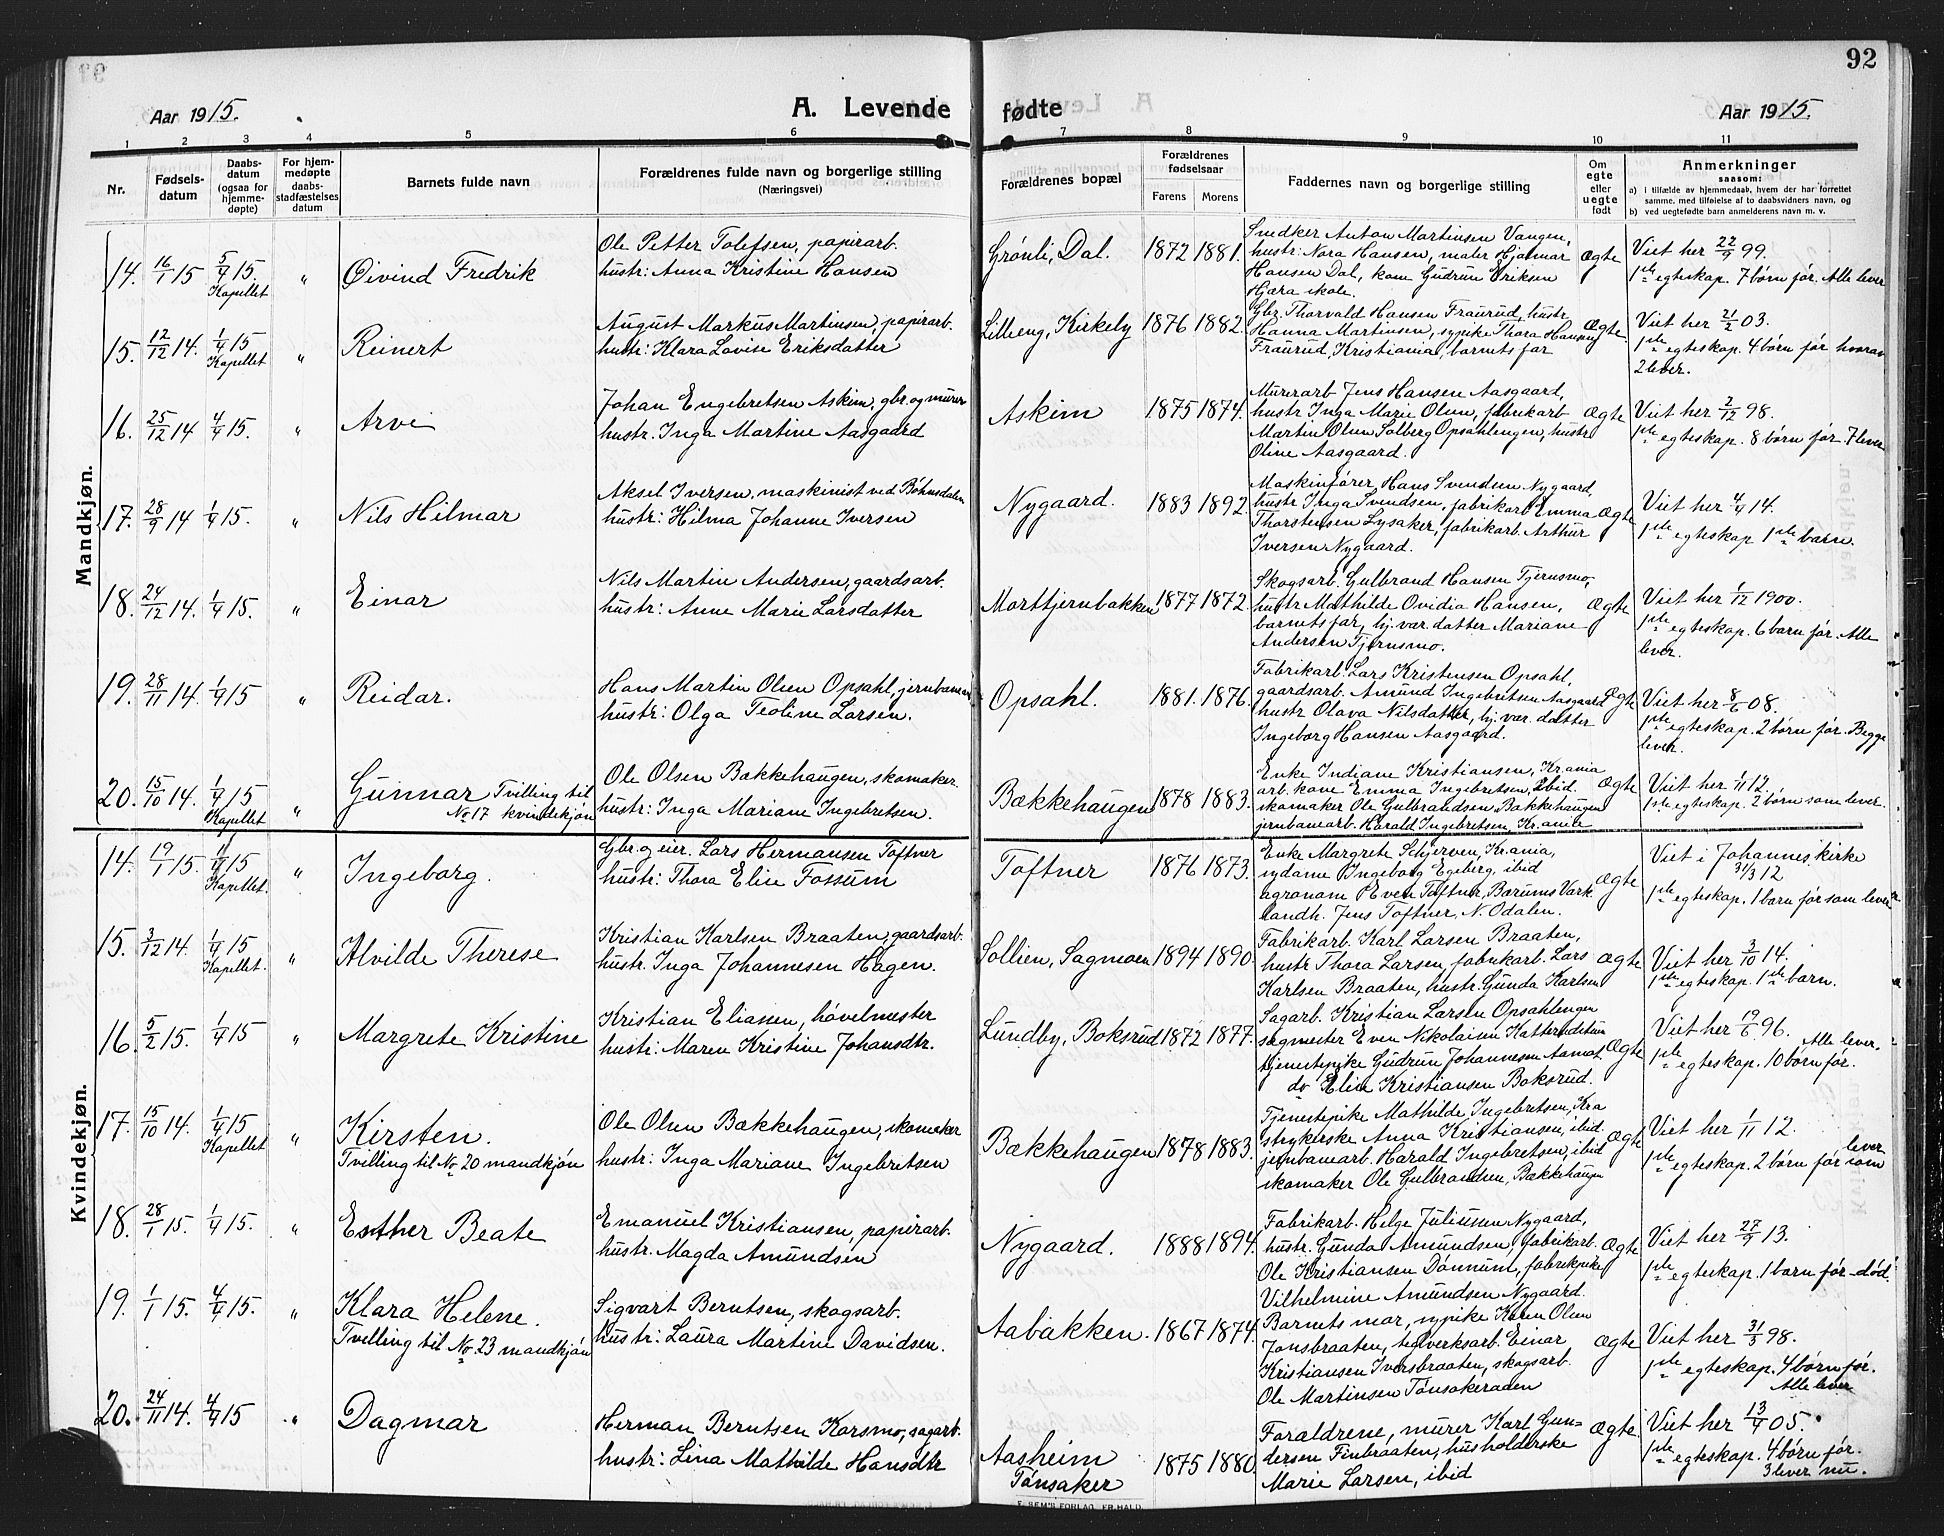 92
Aar 1915.
A. Levende fødte
Aar 1915.
1 2 3 4 5 6 7 8 9 10 11
Nr.
Fødsels-
datum
Daabs-
datum
(ogsaa for
hjemme-
døpte)
For hjem-
medøpte
daabs-
stadfæstelses
datum
Barnets fulde navn
Forældrenes fulde navn og borgerlige stilling
(Næringsvei)
Forældrenes bopæl
Forældrenes
fødselsaar
Farens Morens
Faddernes navn og borgerlige stilling
Om
egte
eller
uegte
født
Anmerkninger
saasom:
a) i tilfælde av hjemmedaab, hvem der har forrettet
samme, med tilføielse af to daabsvidners navn, og
b) ved uegtefødte barn anmelderens navn m. v.
Mandkjøn.
14. 16/1 15 5/4 15. Kapellet " Øivind Fredrik
Ole Petter Tolefsen, papirarb.
hustr: Anna Kristine Hansen
Grønli, Dal. 1872 1881.
Snedker Anton Martinsen Vangen,
hustr: Nora Hansen, maler Hjalmar
Hansen Dal, kone Gudrun Eriksen
Hjæra skole.
Ægte
Viet her 22/9 99.
1ste egteskap. 7 børn før. Alle lever
15. 12/12 14. 1/4 15 Kapellet " Reinert
August Markus Martinsen, papirarb.
hustr: Klara Lovise Eriksdatter
Lilleeng, Kirkeby 1876 1882.
Gbr. Thorvald Hansen Fraurud, hustr
Hanna Martinsen, sypike Thora Hansen
Fraurud, Kristiania, barnets far
Ægte
Viet her 21/2 03.
1ste egteskap. 4 børn før hvorav
2 lever.
16. 25/12 14 4/4 15. " Arve
Johan Engebretsen Askim, gbr. og murer
hustr. Inga Martine Aasgaard
Askim 1875 1874.
Murerarb Jens Hansen Aasgaard,
hustr Inga Marie Olsen, fabrikarb
Martin Olsen Solberg Opsahlengen, hustr
Oline Aasgaard.
Ægte
Viet her 2/12 98.
1ste egteskap. 8 børn før. 7 lever
17. 28/9 14 1/4 15. " Nils Hilmar
Aksel Iversen, maskinist ved Bøhnsdalen
hustr: Hilma Johanne Iversen
Nygaard. 1883 1892.
Maskinfører, Hans Svendsen Nygaard,
hustr Inga Svendsen, fabrikarb Emma
Thorstensen Lysaker, fabrikarb. Arthur
Iversen Nygaard.
Ægte
Viet her 4/4 14.
1ste egteskap 1ste barn.
18. 24/12 14. 1/4 15. " Einar
Nils Martin Andersen, gaardsarb.
hustr: Anne Marie Larsdatter
Morttjernbakken 1877 1872.
Skogsarb. Gulbrand Hansen Tjernsmo,
hustr Mathilde Ovidia Hansen,
barnets far, hj. vær. datter Mariane
Andersen Tjernsmo.
Ægte
Viet her 1/12 1900.
1ste egteskap. 6 børn før. Alle
lever.
19. 28/11 14. 1/4 15 " Reidar.
Hans Martin Olsen Opsahl, jernbanem
hustr: Olga Teoline Larsen.
Opsahl. 1881. 1876.
Fabrikarb. Lars Kristensen Opsahl,
gaardsarb. Amund Ingebretsen Aasgaard
hustr Olava Nilsdatter, hj. vær. datter
Ingeborg Hansen Aasgaard.
Ægte
Viet her 8/6 08.
1ste egteskap. 2 børn før. Begge
lever.
20. 15/10 14. 1/4 15 Kapellet " Gunnar Tvilling til
No 17 kvindekjøn
Ole Olsen Bækkehaugen, skomaker.
hustr: Inga Mariane Ingebretsen.
Bækkehaugen 1878 1883.
Enke Indiane Kristiansen, Kr.ania
arb. kone Emma Ingebretsen, ibid.
skomaker Ole Gulbrandsen Bækkehaugen
jernbanearb. Harald Ingebretsen, Kr.ania
Ægte
Viet her 1/11 12.
1ste egteskap. 2 børn som lever.
Kvindekjøn.
14. 19/1 15. 1/4 15 Kapellet. " Ingeborg.
Gbr. og eier. Lars Hermansen Toftner
hustr: Thora Elise Fossum
Toftner 1876 1873.
Enke Margrete Schjerven, Kr.ania,
sydame Ingeborg Egeberg, ibid
agronom Even Toftner, Bærums Værk
landh. Jens Toftner, N. Odalen.
Ægte
Viet i Johannes kirke
31/3 12
1ste egteskap. 1 barn før som lever
15. 3/12 14. 1/4 15 Kapellet. " Alvilde Therese
Kristian Karlsen Braaten, gaardsarb.
hustr. Inga Johannesen Hagen.
Sollien, Sagmoen 1894 1890.
Fabrikarb. Karl Larsen Braaten,
hustr Thora Larsen, fabrikarb. Lars
Karlsen Braaten, hustr. Gunda Karlsen
Ægte
Viet her 3/10 14.
1ste egteskap. 1ste barn.
16. 5/2 15. 1/4 15 " Margrete Kristine
Kristian Eliassen, høvelmester
hustr: Maren Kristine Johansdtr.
Lundby, Boksrud 1872 1877.
Sagarb. Kristian Larsen Opsahlengen
sagmester Even Nikolaisen Katterudstun
tjenestepike Gudrun Johannesen Aamot
do Elise Kristiansen Boksrud.
Ægte
Viet her 19/6 96. Alle lever.
1ste egteskap. 10 børn før.
17. 15/10 14. 1/4 15 Kapellet " Kirsten.
Tvilling til No 20 mandkjøn
Ole Olsen Bækkehaugen, skomaker
hustr: Inga Mariane Ingebretsen
Bækkehaugen 1878 1883.
Tjenestepike Mathilde Ingebretsen, Kra
strykerske Anna Kristiansen, ibid.
jernbanearb. Harald Ingebretsen, ibid
skomaker Ole Gulbrandsen, Bækkehaugen
Ægte
Viet her 1/11 12.
1ste egteskap. 2 børn før som lever
18. 28/1 15. 1/4 15. " Esther Beate
Emanuel Kristiansen, papirarb.
hustr. Magda Amundsen
Nygaard. 1888 1894.
Fabrikarb. Helge Juliussen Nygaard,
hustr. Gunda Amundsen, fabrikarb.
Ole Kristiansen Dønnum, fabrikpike
Vilhelmine Amundsen Nygaard.
Ægte
Viet her 27/9 13.
1ste egteskap. 1 barn før - død.
19. 1/1 15. 4/4 15. " Klara Helene.
Tvilling til No 23 mandkjøn
Sigvart Berntsen, skogsarb.
hustr: Laura Martine Davidsen.
Aabakken. 1867 1874.
Barnets mor, sypike Karen Olsen
Jonsbraaten, teglverksarb. Einar
Kristiansen Iversbraaten, skogsarb.
Ole Martinsen Tønsakeraden
Ægte
Viet her 31/3 98.
1ste egteskap. 4 børn før.
Alle lever
20. 24/11 14. 4/4 15 " Dagmar
Herman Berntsen Korsmo, sagarb.
hustr: Lina Mathilde Hansdtr
Aasheim
Tønsaker 1875 1880.
Forældrene, murer Karl Gun-
dersen Finbraaten, husholderske
Marie Larsen, ibid
Ægte
Viet her 13/4 05.
1ste egteskap. 4 børn før.
3 lever nu.
E. SEM'S FORLAG, FR.HALD.